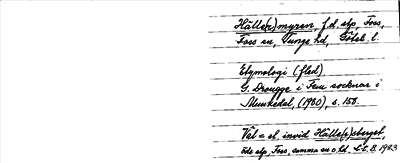 Hälle(r)myren, f.d. stp, Foss,
Foss sn, Tunge hd, Göteb. l.
Etymologi (fled)
G. Drougge i Fem socknar i
Munkedal, (1980), s. 150.
Vål = el. invid Hälle(r)berget,
f.d. stp, Foss, samma sn o. hd. 1983